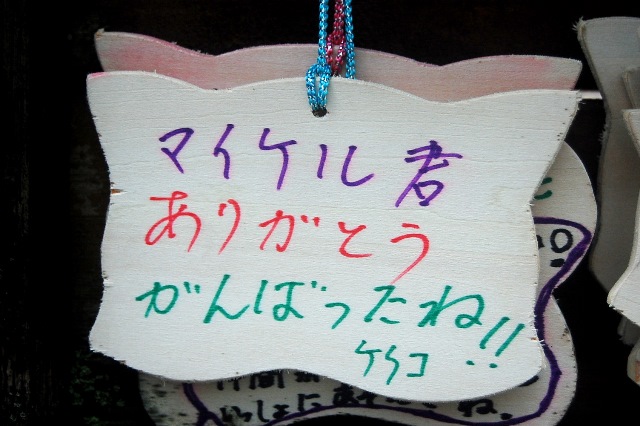 マイケル君
ありがとう
がんばったね!!
ケイコ